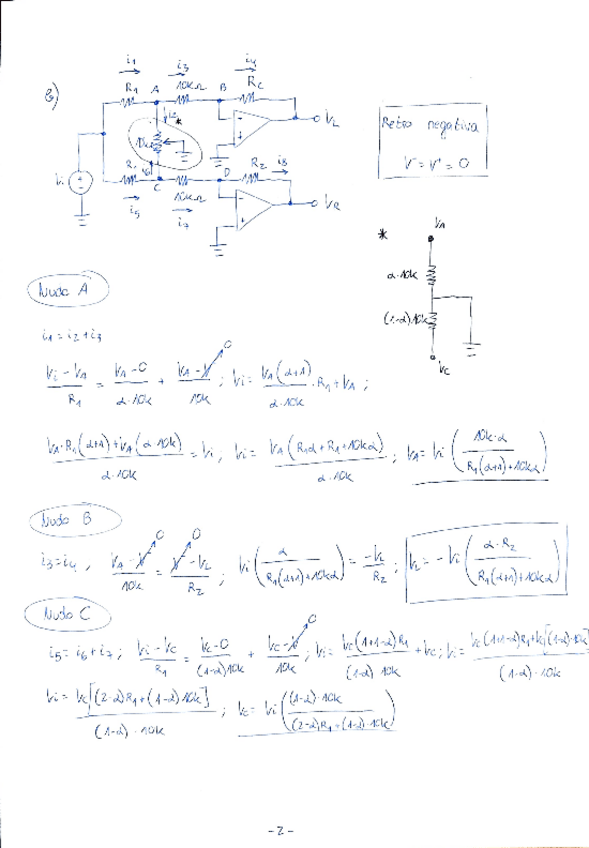 b)
i₁ i₃ i₄
R₁ A 10kΩ B R₂
i₂ *
VL
10kΩ
Vi
R₁ i₆ C 10kΩ D R₂ i₈
VR
i₅ i₇
Retro negativa
V⁻=V⁺=0
*
VA
α·10k
(1-α)·10k
VC
Nudo A
i₁=i₂+i₃
(Vi-VA)/R₁ = (VA-0)/(α·10k) + (VA-V⁻ →0)/10k ; Vi = VA(α+1)/(α·10k) · R₁+VA ;
(VA·R₁(α+1)+VA(α·10k))/(α·10k) = Vi ; Vi = VA(R₁α+R₁+10kα)/(α·10k) ; VA = Vi (10k·α/(R₁(α+1)+10kα))
Nudo B
i₃=i₄ , (VA-V⁻ →0)/10k = (V⁻ →0 -VL)/R₂ ; Vi (α/(R₁(α+1)+10kα)) = -VL/R₂ ; VL = -Vi (α·R₂/(R₁(α+1)+10kα))
Nudo C
i₅=i₆+i₇ ; (Vi-VC)/R₁ = (VC-0)/((1-α)10k) + (VC-V⁻ →0)/10k ; Vi = VC(1+1-α)R₁/((1-α)·10k) + VC ; Vi = (VC(1+1-α)R₁+VC[(1-α)·10k])/((1-α)·10k)
Vi = VC[(2-α)R₁+(1-α)·10k]/((1-α)·10k) ; VC = Vi ((1-α)·10k/((2-α)R₁+(1-α)·10k))
-2-